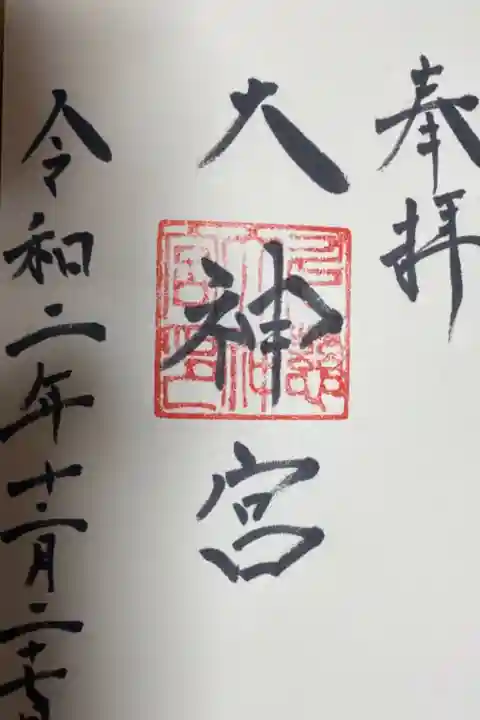 奉拝
大神宮
令和二年十二月二十七日